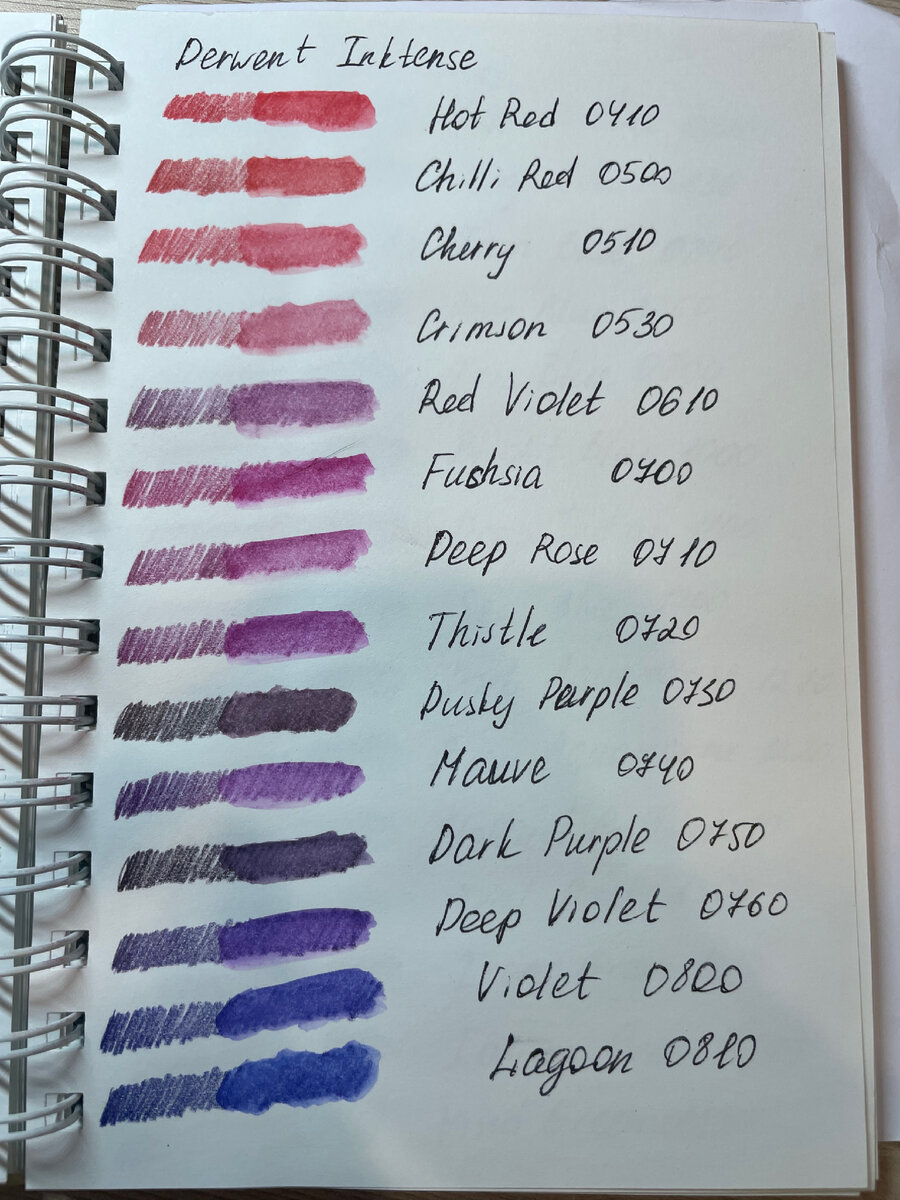 Derwent Inktense
Hot Red 0410
Chilli Red 0500
Cherry 0510
Crimson 0530
Red Violet 0610
Fuchsia 0700
Deep Rose 0710
Thistle 0720
Dusky Purple 0730
Mauve 0740
Dark Purple 0750
Deep Violet 0760
Violet 0800
Lagoon 0810